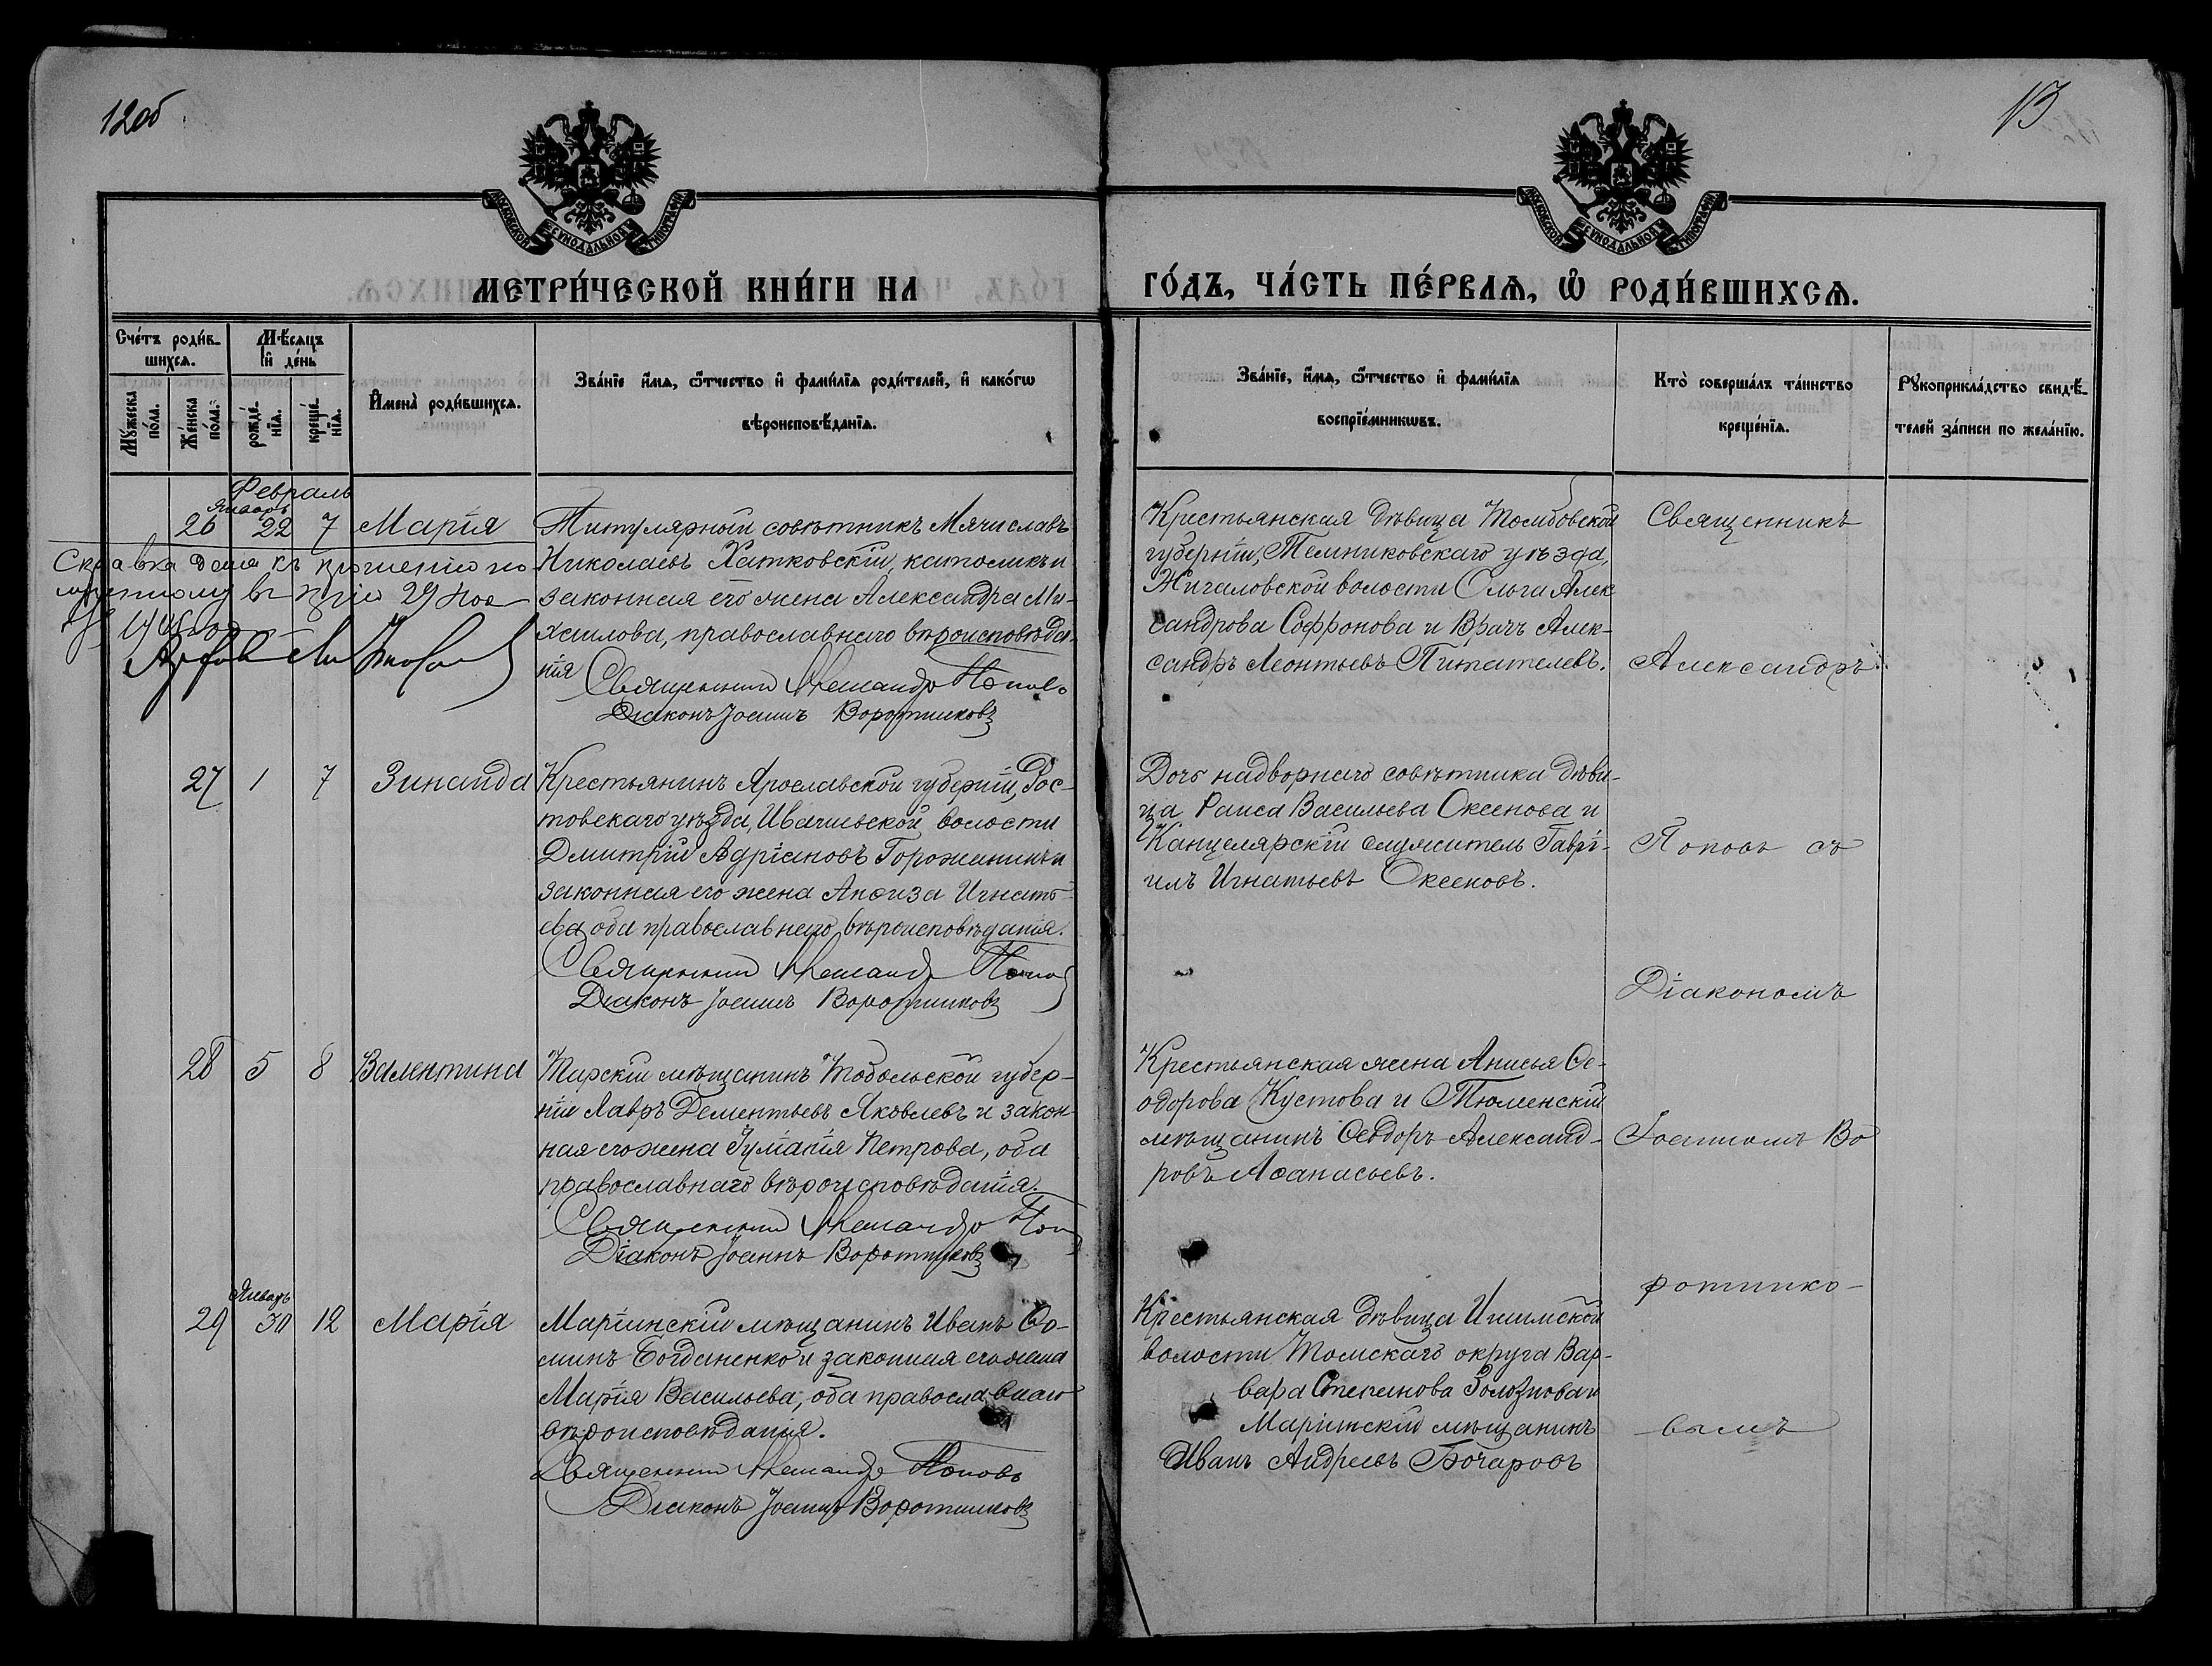 12об
13
МОСКОВСКОЙ СѴНОДАЛЬНОЙ ТИПОГРАФІИ
МОСКОВСКОЙ СѴНОДАЛЬНОЙ ТИПОГРАФІИ
МЕТРИ́ЧЕСКОЙ КНИ́ГИ НА
ГО́ДЪ, ЧА́СТЬ ПЕ́РВАѦ, Ѡ҆ РОДИ́ВШИХСѦ.
Сче́тъ роди́в-
шихсѧ.
Мѣ́сѧцъ
и҆ де́нь
Мꙋ́жеска
по́ла.
Же́нска
по́ла.
рожде́-
нїѧ.
креще́-
нїѧ.
И҆мена̀ роди́вшихсѧ.
Зва́нїе и҆́мѧ, ѻ҆́тчество и҆ фами́лїѧ роди́телей, и҆ како́гѡ
вѣроисповѣ́данїѧ.
Зва́нїе, и҆́мѧ, ѻ҆́тчество и҆ фами́лїѧ
воспрїе́мникѡвъ.
Кто̀ соверша́лъ та́инство
креще́нїѧ.
Рꙋкоприкла́дство свидѣ́-
телей за́писи по жела́нїю.
Февраль
Январь
26 22 7 Марія
Титулярный совѣтникъ Мячиславъ
Николаевъ Хатковскій, католикъ и
законная его жена Александра Ми-
хаилова, православнаго вѣроисповѣда-
нія
Священникъ Александръ Поповъ
Діаконъ Іоаннъ Воротниковъ
Справка дана къ прошенію по
29 Ноя
Крестьянская дѣвица Тамбовской
губерніи, Темниковскаго уѣзда,
Жигаловской волости Ольга Алек
сандрова Софронова и Врачъ Алек-
сандръ Леонтьевъ Питателевъ.
Священникъ
Александръ
27 1 7 Зинаида
Крестьянинъ Ярославской губерніи, Рос-
товскаго уѣзда, Ивашевской волости
Дмитрій Адріановъ Горожанинъ и
законная его жена Анѳиза Игнать-
ева оба православнаго вѣроисповѣданія.
Священникъ Александръ Поповъ
Діаконъ Іоаннъ Воротниковъ
Дочь надворнаго совѣтника дѣви-
ца Раиса Васильева Оксенова и
Канцелярскій служитель Гаврі-
илъ Игнатьевъ Оксеновъ.
Поповъ съ
Діакономъ
28 5 8 Валентина
Тарскій мѣщанинъ Тобольской губер-
ніи Лавръ Дементьевъ Яковлевъ и закон-
ная его жена Іуліанія Петрова, оба
православнаго вѣроисповѣданія.
Священникъ Александръ Поповъ
Діаконъ Іоаннъ Воротниковъ
Крестьянская жена Анисья Ѳе-
одорова Кустова и Тюменскій
мѣщанинъ Ѳеодоръ Александ-
ровъ Аѳанасьевъ.
Іоанномъ Во
ротнико-
Январь
29 30 12 Марія
Маріинскій мѣщанинъ Иванъ Ѳо-
минъ Богданенко и законная его жена
Марія Васильева, оба православнаго
вѣроисповѣданія.
Священникъ Александръ Поповъ
Діаконъ Іоаннъ Воротниковъ
Крестьянская дѣвица Ишимской
волости Томскаго округа Вар-
вара Степанова Золознова и
Маріинскій мѣщанинъ
Иванъ Андреевъ Бочаровъ
вымъ